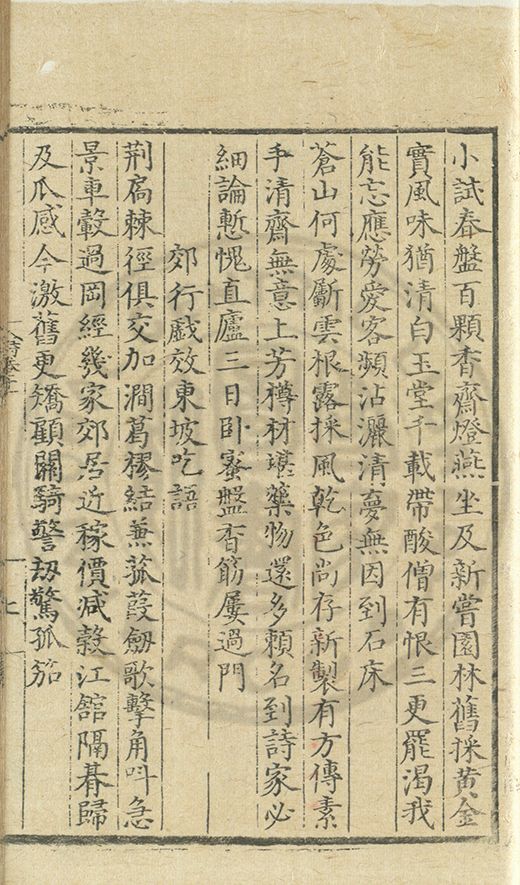 小試春盤百顆香齋燈燕坐及新嘗園林舊採黃金
實風味猶清白玉堂千載帶酸僧有恨三更罷渴我
能忘應勞愛客頻沾灑清夢無因到石床
蒼山何處斸雲根露採風乾色尚存新製有方傳素
手清齋無意上芳樽材堪藥物還多賴名到詩家必
細論慙愧直廬三日臥蜜盤香筯屢過門
郊行戲效東坡吃語
荆扃棘徑俱交加澗葛樛結兼菰葭劔歌擊角叫急
景車轂過岡經幾家郊居近稼價減穀江舘隔暮歸
及瓜感今激舊更矯顧關騎警刼驚孤笳